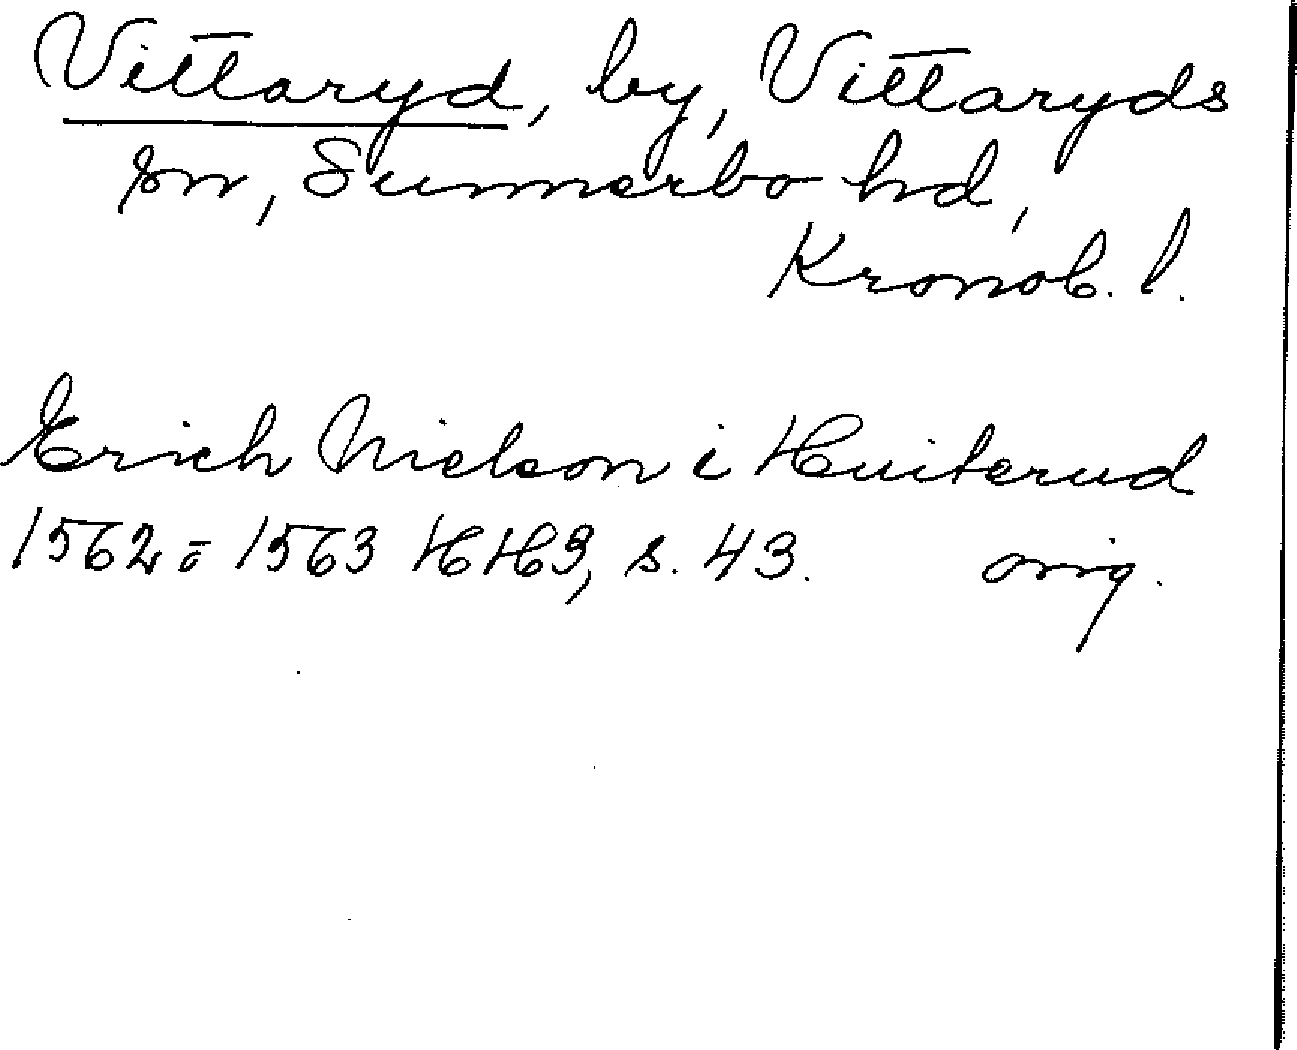 Vittaryd, by, Vittaryds
sn, Sunnerbo hd,
Kronob. l.
Erich Nielson i Huiterud
1562 o 1563 HH3, s. 43. orig.